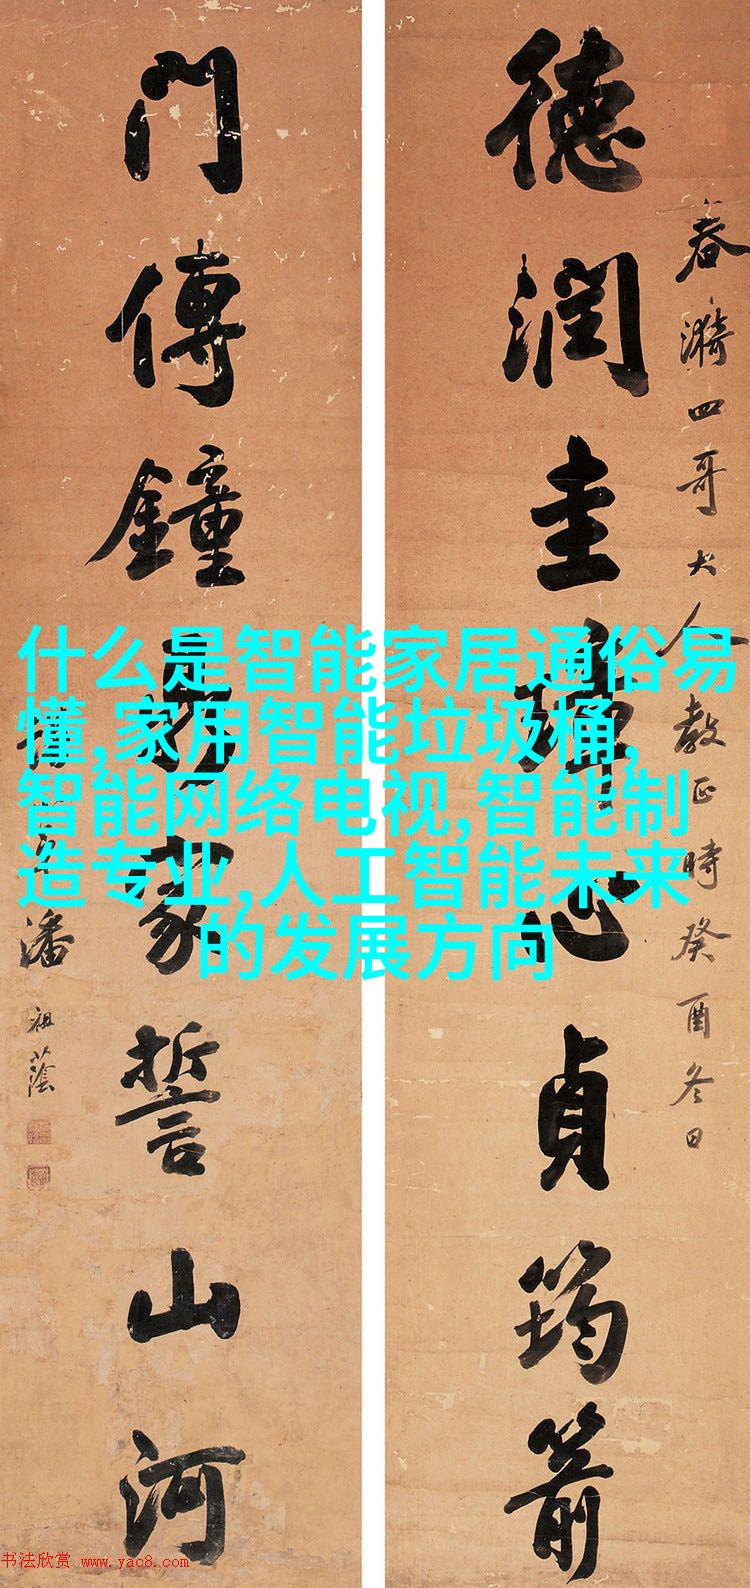 德潤圭璋心貞筠箭
春漪四哥大人教正時癸酉冬日
門傳鐘
家誓山河
潘祖蔭
什么是智能家居通俗易
懂,家用智能垃圾桶,
智能网络电视,智能制
造专业,人工智能未来
的发展方向
书法欣赏 www.yac8.com